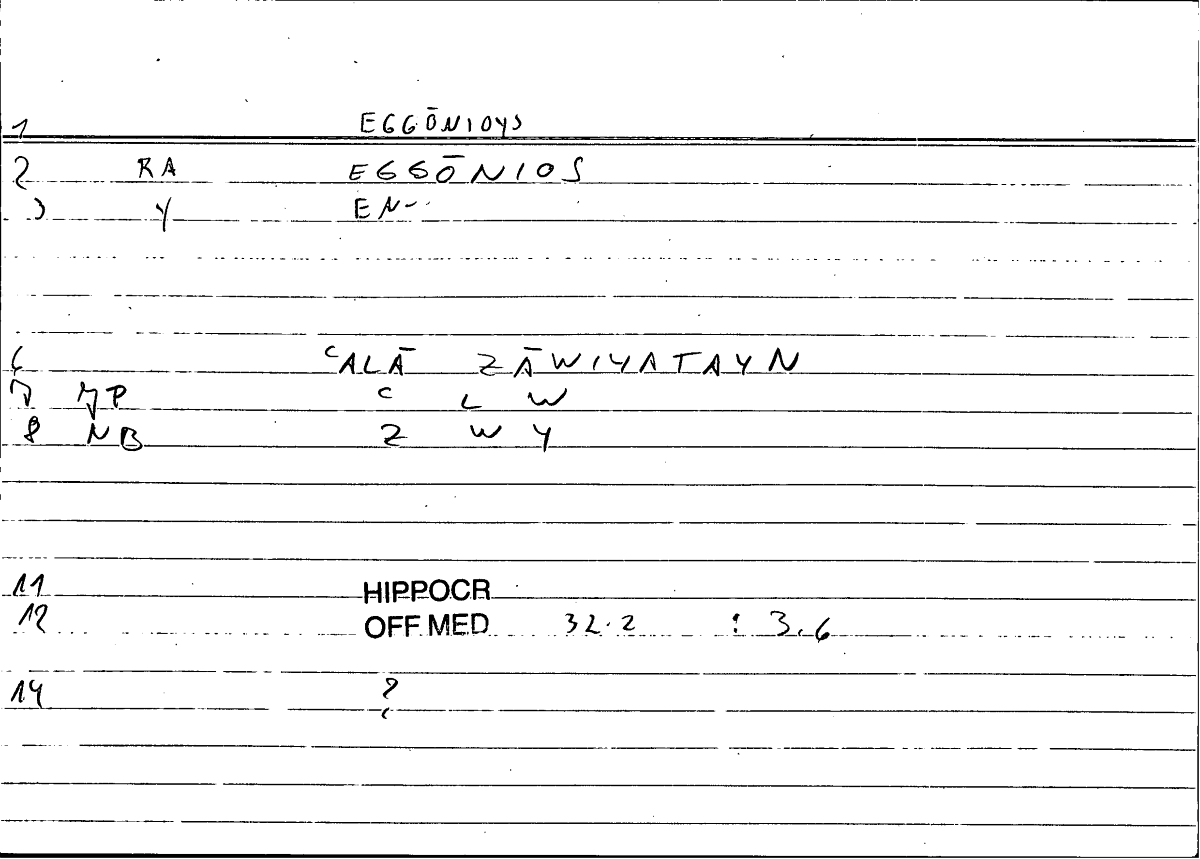 1 EGGŌNIOYS
2 RA EGGŌNIOS
3 Y EN-
6 ʿALĀ ZĀWIYATAYN
7 JP ʿ L W
8 NB Z W Y
11 HIPPOCR
12 OFF.MED 32.2 : 3.6
14 ?